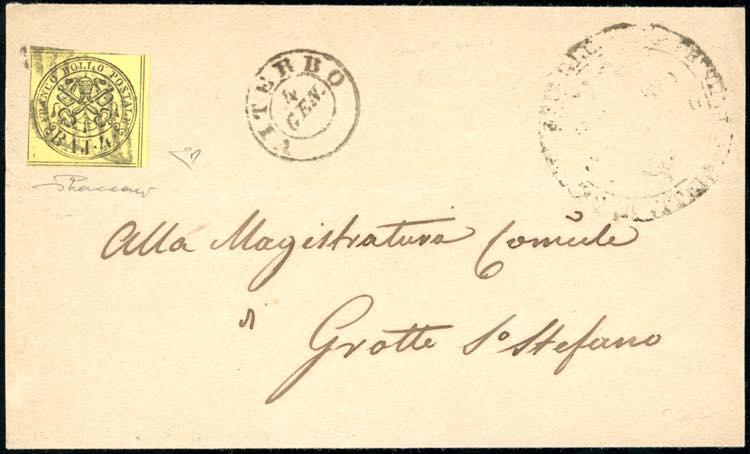 FRANCO BOLLO POSTALE
BAJ. 4
VITERBO
4
GEN.
Alla Magistratura Comũle
di
Grotte Sº Stefano